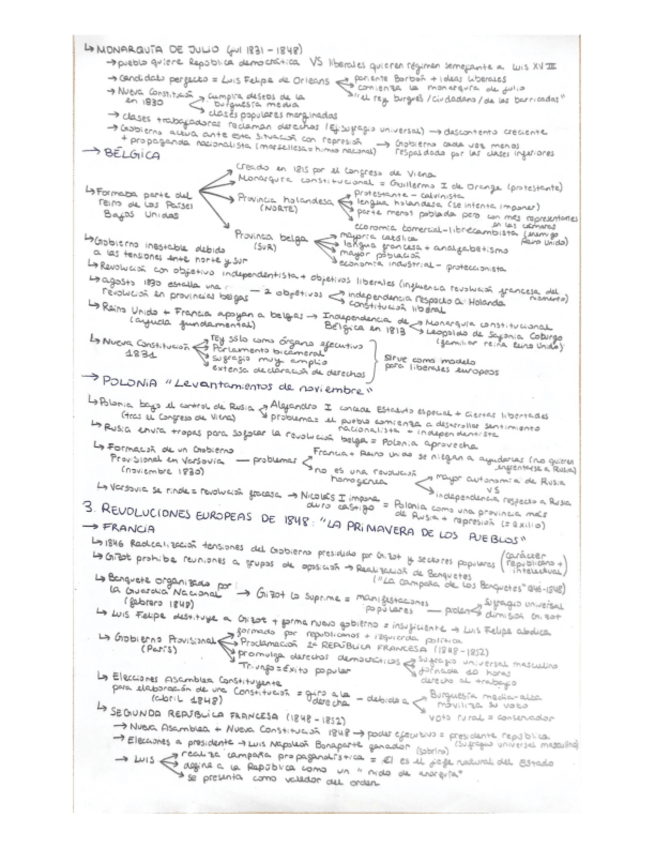 ↳ MONARQUÍA DE JULIO (jul 1831 - 1848)
→ pueblo quiere República democrática VS liberales quieren régimen semejante a Luis XVIII
→ candidato perfecto = Luis Felipe de Orleans → pariente Borbón + ideas liberales
→ comienza la monarquía de julio
→ "el rey burgués / ciudadano / de las barricadas"
→ Nueva Constitución en 1830 → cumplía deseos de la burguesía media
→ clases populares marginadas
→ clases trabajadoras reclaman derechos (ej sufragio universal) → descontento creciente
→ Gobierno actúa ante esta situación con represión + propaganda nacionalista (marsellesa = himno nacional) → Gobierno cada vez menos respaldado por las clases inferiores
→ BÉLGICA
↳ Formaba parte del reino de los Países Bajos Unidos
→ creado en 1815 por el Congreso de Viena
→ Monarquía constitucional = Guillermo I de Orange (protestante)
→ Provincia holandesa (NORTE)
→ protestante - calvinista
→ lengua holandesa (se intenta imponer)
→ parte menos poblada pero con más representantes en las cámaras
→ economía comercial - librecambista (enemigo Reino Unido)
→ Provincia belga (SUR)
→ mayoría católica
→ lengua francesa + analfabetismo
→ mayor población
→ economía industrial - proteccionista
↳ Gobierno inestable debido a las tensiones entre norte y sur
↳ Revolución con objetivo independentista + objetivos liberales (influencia revolución francesa del momento)
↳ agosto 1830 estalla una revolución en provincias belgas - 2 objetivos → independencia respecto a Holanda
→ constitución liberal
↳ Reino Unido + Francia apoyan a belgas (ayuda fundamental) → Independencia de Bélgica en 1813 → Monarquía constitucional
→ Leopoldo de Sajonia Coburgo (familiar reina Reino Unido)
↳ Nueva Constitución 1831
→ rey sólo como órgano ejecutivo
→ Parlamento bicameral
→ sufragio muy amplio
→ extensa declaración de derechos
sirve como modelo para liberales europeos
→ POLONIA "Levantamientos de noviembre"
↳ Polonia bajo el control de Rusia (tras el Congreso de Viena) → Alejandro I concede Estatuto especial + ciertas libertades
→ problema = el pueblo comienza a desarrollar sentimiento nacionalista - independentista
↳ Rusia envía tropas para sofocar la revolución belga = Polonia aprovecha
↳ Formación de un Gobierno Provisional en Varsovia (noviembre 1830) — problemas → Francia + Reino Unido se niegan a ayudarlos (no quieren enfrentarse a Rusia)
→ no es una revolución homogénea → mayor autonomía de Rusia
VS
→ independencia respecto a Rusia
↳ Varsovia se rinde = revolución fracasa → Nicolás I impone duro castigo = Polonia como una provincia más de Rusia + represión (→ exilio)
3. REVOLUCIONES EUROPEAS DE 1848: "LA PRIMAVERA DE LOS PUEBLOS"
→ FRANCIA
↳ 1846 Radicalización tensiones del Gobierno presidido por Gizot y sectores populares (carácter republicano + intelectual)
↳ Gizot prohíbe reuniones a grupos de oposición → Realización de Banquetes ("La Campaña de los Banquetes" 1846-1848)
↳ Banquete organizado por la Guardia Nacional (febrero 1848) → Gizot lo suprime = manifestaciones populares — piden → sufragio universal
→ dimisión Gizot
↳ Luis Felipe destituye a Gizot + forma nuevo gobierno = insuficiente → Luis Felipe abdica
↳ Gobierno Provisional (París)
→ formado por republicanos + izquierda política
→ Proclamación 2ª REPÚBLICA FRANCESA (1848-1852)
→ promulga derechos democráticos → sufragio universal masculino
→ jornada 10 horas
→ derecho al trabajo
→ Triunfo = éxito popular
↳ Elecciones Asamblea Constituyente para elaboración de una Constitución = giro a la derecha (abril 1848) - debido a → Burguesía media-alta moviliza su voto
→ voto rural = conservador
↳ SEGUNDA REPÚBLICA FRANCESA (1848-1852)
→ Nueva Asamblea + Nueva Constitución 1848 → poder ejecutivo = presidente república
→ Elecciones a presidente → Luis Napoleón Bonaparte ganador (sobrino) (sufragio universal masculino)
→ Luis → realiza campaña propagandística = él es el jefe natural del Estado
→ define a la República como un "nido de anarquía"
→ se presenta como valedor del orden